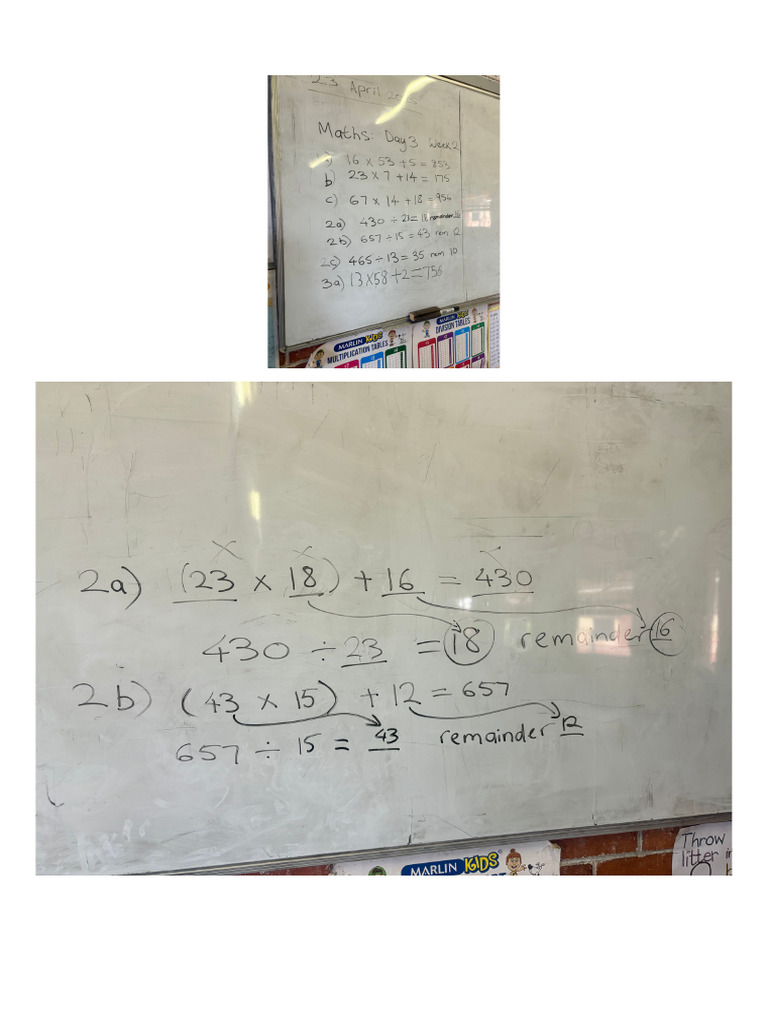 23 April
Maths: Day 3 Week 2
16 x 53 + 5 = 853
b) 23 x 7 + 14 = 175
c) 67 x 14 + 18 = 956
2a) 430 ÷ 23 = 18 remainder 16
2b) 657 ÷ 15 = 43 rem 12
2c) 465 ÷ 13 = 35 rem 10
3a) 13 x 58 + 2 = 756
MARLIN KIDS
MULTIPLICATION TABLES
MARLIN KIDS
DIVISION TABLES
2a) (23 x 18) + 16 = 430
430 ÷ 23 = 18 remainder 16
2b) (43 x 15) + 12 = 657
657 ÷ 15 = 43 remainder 12
MARLIN KIDS
Throw
litter